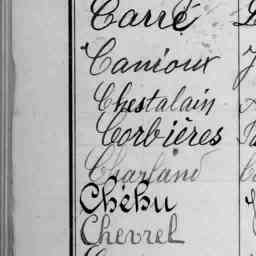 Carré
Canioux
Chestalain
Corbières
Charland
Chéhu
Chevrel